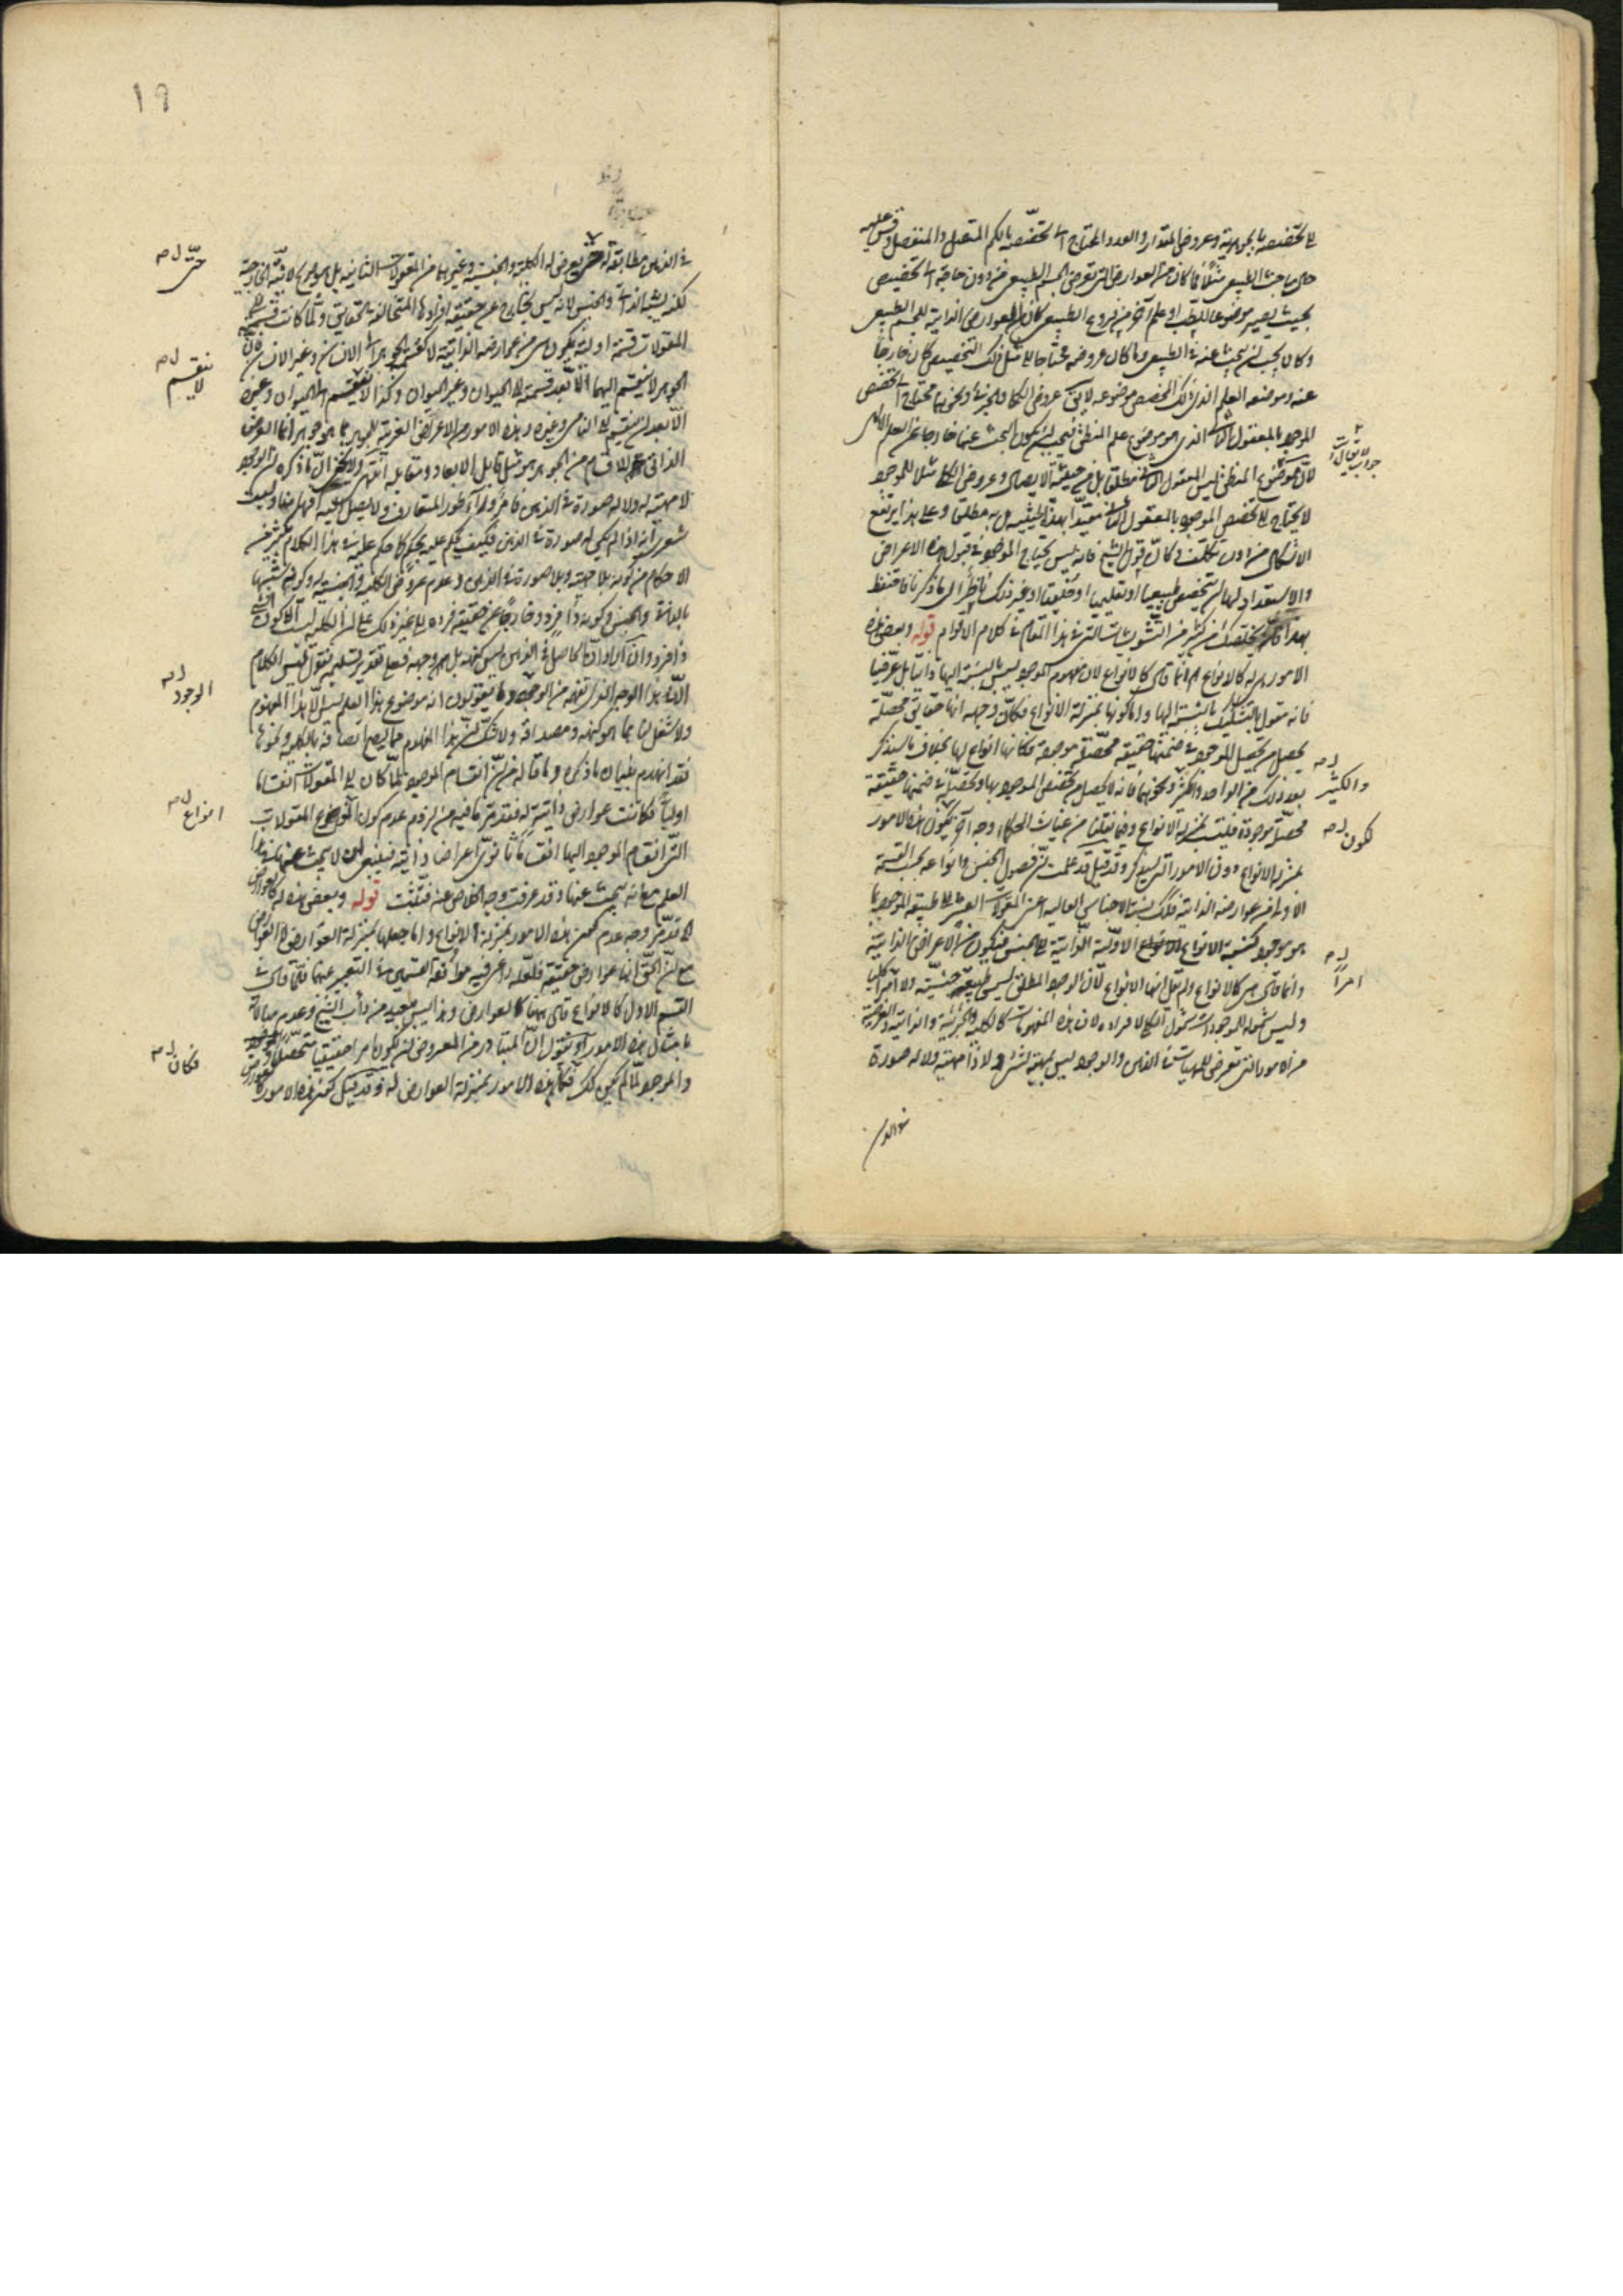 الى تخصصه بالجوهرية وعروض المقدار والعدد المحتاج الى تخصصه بالكم المتصل والمنفصل وقس عليه
حال مباحث الطبيعى مثلا فما كان من العوارض التى تعرض الجسم الطبيعى من دون حاجة الى تخصيص
بحيث يصير موضوعا للطب او علم آخر من فروع الطبيعى كان من العوارض الذاتية للجسم الطبيعى
وكان يجب ان يبحث عنه فى الطبيعى وما كان عروضه محتاجا الى مثل ذلك التخصيص كان خارجا
عنه وموضعه العلم الذى ذلك المخصص موضوعه لا يق عروض الكلى والجزئى ونحوهما محتاج الى تخصص
الموجود بالمعقول الثانى الذى هو موضوع علم المنطق فيجب ان يكون البحث عنها خارجا عن العلم الالهى
لان موضوع المنطق ليس المعقول الثانى مطلقا بل من حيثية الايصال وعروض الكلى مثلا للموجود
لا يحتاج الى تخصص الموجود بالمعقول الثانى مقيدا بهذه الحيثية بل به مطلقا وعلى هذا يرتفع
الاشكال من دون تكلف وكان قول الشيخ فانه ليس يحتاج الموجود فى قبول هذه الاعراض
والاستعداد لها الى تخصص طبيعيا او تعليميا او خلقيا او غير ذلك ناظر الى ما ذكرنا فاحتفظ
بهذا فانه يخلصك من كثير من التشويشات التى فى هذا المقام فى كلام الاقوام قوله وبعض هذه
الامور هى له كالانواع اه انما قال كالانواع لان مفهوم الموجود ليس بالنسبة اليها ذاتيا بل عرضيا
فانه مقول بالتشكيك بالنسبة اليها واما كونها بمنزلة الانواع فكان وجهه انها حقائق محصلة
يحصل من تحصل الموجود فى ضمنها حقيقة محصلة موجودة فكانها انواع لها بخلاف ما سيذكر
بعد ذلك من الواحد والكثير ونحوهما فانه لا يحصل من تخصص الموجود بها وتحصله فى ضمنها حقيقة
محصلة موجودة فليست بمنزلة الانواع وفيما نقلنا من غياث الحكماء وجه آخر لكون هذه الامور
بمنزلة الانواع دون الامور التى سيذكر وقد قيل قد علمت ان فصول الجنس وانواعه بحسب القسمة
الاولى من عوارضه الذاتية فلك نسبة الاجناس العالية اعنى المقولات العشر الى طبيعة الموجود بما
هو موجود كنسبة الانواع الاولية الذاتية الى الجنس فيكون من الاعراض الذاتية
وانما قال هى كالانواع ولم يقل انها الانواع لان الوجود المطلق ليس طبيعة جنسية ولا امرا كليا
وليس شموله للموجودات شمول الكلى لافراده لان هذه المفهومات كالكلية والجزئية والذاتية والعرضية
من الامور التى تعرض للمهيات فى الذهن والوجود ليس بمهية لشئ لا ذا مهية ولا له صورة
فى الذهن
لا يقال
جواب
والكثير ل مه
لكون ل مه
امرا ل مه
19
فى الذهن مطابقة له حتى يعرض له الكلية والجنسية وغيرهما من المعقولات الثانية
لكنه يشبه الذات والجنس لانه ليس بخارج عن حقيقة افرادها المتخالفة الحقايق ولما كانت قسمته الى
المقولات قسمة اولية يكون هى من عوارضه الذاتية لا كقسمة الجوهر الى الانسان وغير الانسان فان
الجوهر لا ينقسم اليهما الا بعد قسمته الى الحيوان وغير الحيوان وكذا لا ينقسم الى الحيوان وغيره
الا بعد ان ينقسم الى النامى وغيره وهذه الامور من الاعراض الغريبة للجوهر بما هو جوهر انما العرض
الذاتى له الاقسام من الجوهر هو مثل قابل الابعاد ومقابله انتهى ولا يخفى ان ما ذكره من ان الوجود
لا مهية له ولا له صورة فى الذهن فامر وراء طور المتعارف ولا يصل اليه افهامنا وليت
شعرى انه اذا لم يكن له صورة فى الذهن فكيف يحكم عليه بحكم كما حكم عليه فى هذا الكلام بكثير من
الاحكام من كونه بلا مهية وبلا صورة فى الذهن وعدم عروض الكلية والجنسية له وكونه شبيها
بالذات والجنس وكونه ذا فرد وخارجا عن حقيقة فرده الى غير ذلك على ان الكلية ليست الا كون
ذا فرد وان اراد ان الحاصل فى الذهن ليس كنهه بل هو وجهه فعلى تقدير تسليمه نقول ليس الكلام
الا فى هذا الوجه الذى نفهمه من الوجود وما يقولون انه موضوع هذا العلم ليس الا هذا المفهوم
ولا شغل لنا بما هو كنهه ومصداقه ولا شك ان هذا المفهوم مما يصح اتصافه بالكلية ونحوها
فقد انهدم بنيان ما ذكره وما قاله من ان انقسام الموجود لما كان الى المقولات انقساما
اوليا فكانت عوارض ذاتية له فقد مر ما فيه من لزوم عدم كون انواع المقولات
التى انقسام الموجود اليها انقساما ثانويا اعراضا ذاتية فينبغى ان لا يبحث عنها فى هذا
العلم مع انه يبحث عنها وقد عرفت وجه الخلاص عنه فتثبت قوله وبعض هذه له كالعوارض
اه قد مر وجه عدم كون هذه الامور بمنزلة الانواع واما جعلها بمنزلة العوارض لا العوارض
مع ان الحق انها عوارض حقيقة فلعله راعى فيه موافقة القسمين فى التعبير عنهما فلما قال فى
القسم الاول كالانواع قال ههنا كالعوارض وهذا ليس ببعيد من دأب الشيخ وعدم مبالاته
بامثال هذه الامور او نقول ان المتبادر من المعروض ان يكون امرا حقيقيا متحصلا
والموجود لما لم يكن كك فكان هذه الامور بمنزلة العوارض له وقد قيل كون هذه الامور كالعوارض
حتى ل مه
ينقسم ل مه
لا
الوجود ل مه
انواع ل مه
فكان ل مه